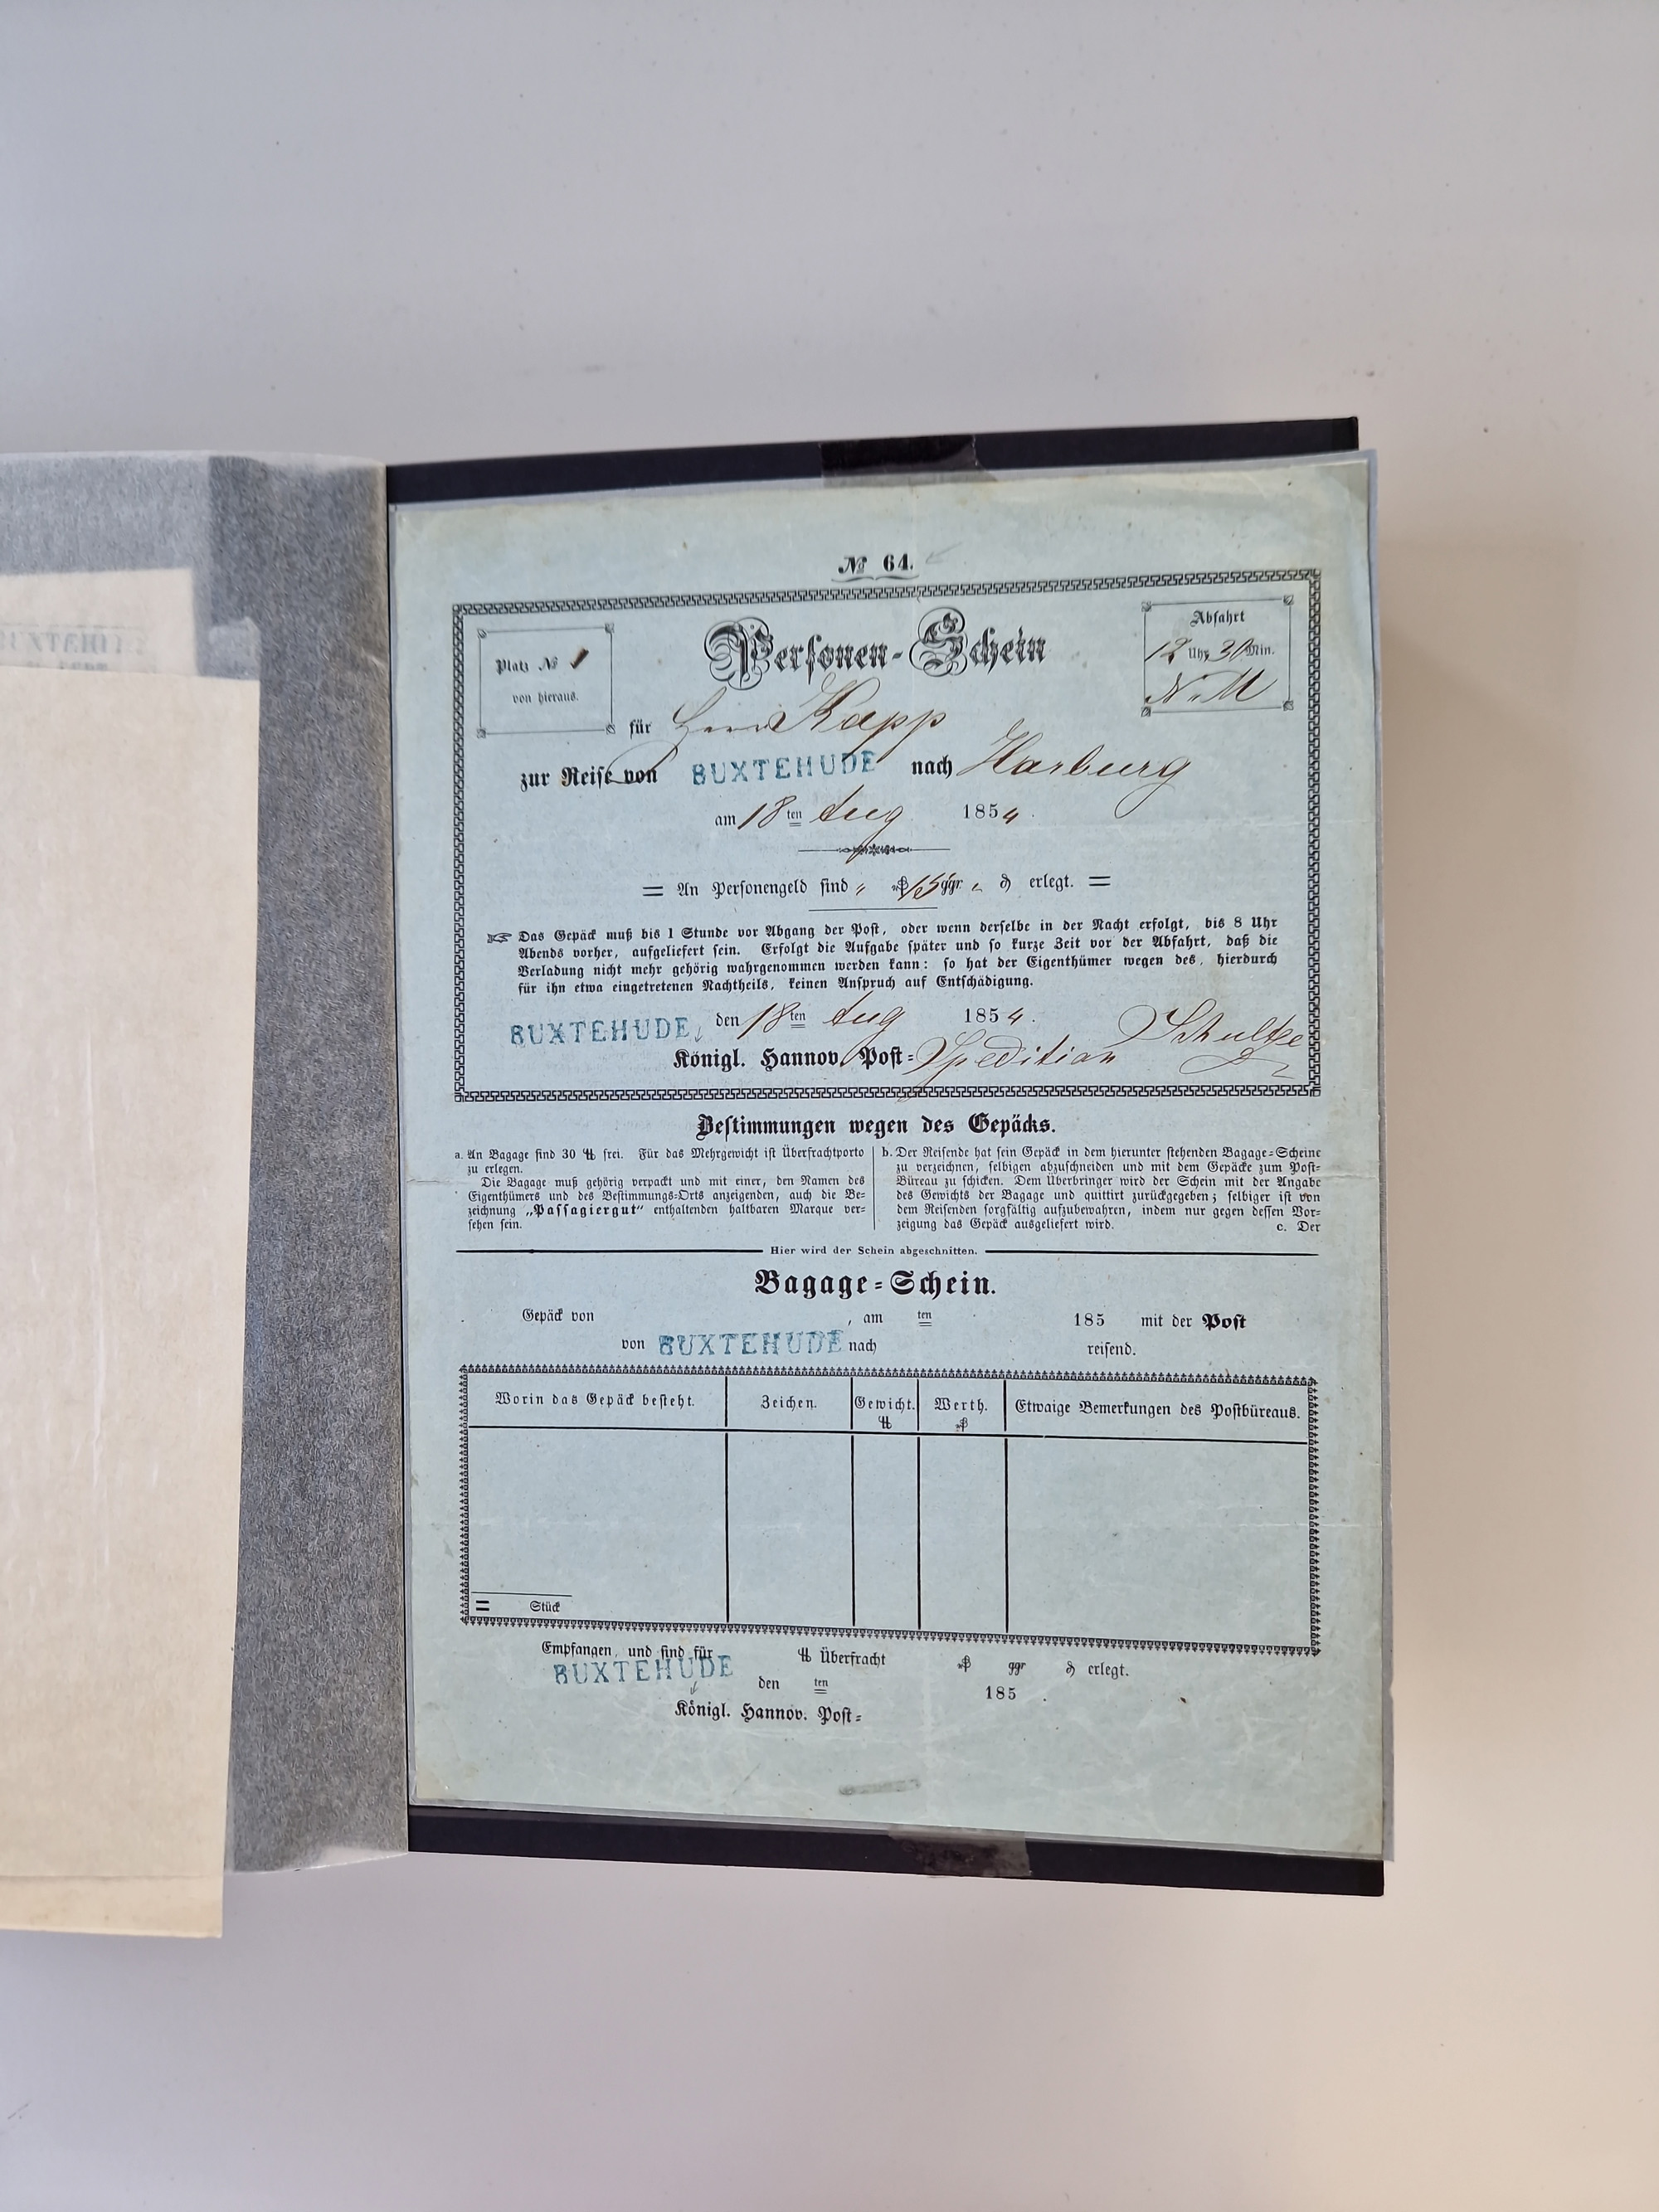 № 64.
Personen-Schein
Platz № 1
von hieraus.
Abfahrt
12 Uhr 30 Min.
N. M
für Herrn Kapp
zur Reise von BUXTEHUDE nach Harburg
am 18 ten Aug 1854.
= An Personengeld sind „ 15 ggr. „ ₰ erlegt. =
☞ Das Gepäck muß bis 1 Stunde vor Abgang der Post, oder wenn derselbe in der Nacht erfolgt, bis 8 Uhr
Abends vorher, aufgeliefert sein. Erfolgt die Aufgabe später und so kurze Zeit vor der Abfahrt, daß die
Verladung nicht mehr gehörig wahrgenommen werden kann: so hat der Eigenthümer wegen des, hierdurch
für ihn etwa eingetretenen Nachtheils, keinen Anspruch auf Entschädigung.
BUXTEHUDE, den 18 ten Aug 1854.
Königl. Hannov. Post-Spedition Schultze
Bestimmungen wegen des Gepäcks.
a. An Bagage sind 30 ℔ frei. Für das Mehrgewicht ist Überfrachtporto
zu erlegen.
Die Bagage muß gehörig verpackt und mit einer, den Namen des
Eigenthümers und des Bestimmungs-Orts anzeigenden, auch die Be-
zeichnung „Passagiergut“ enthaltenden haltbaren Marque ver-
sehen sein.
b. Der Reisende hat sein Gepäck in dem hierunter stehenden Bagage-Scheine
zu verzeichnen, selbigen abzuschneiden und mit dem Gepäcke zum Post-
Büreau zu schicken. Dem Überbringer wird der Schein mit der Angabe
des Gewichts der Bagage und quittirt zurückgegeben; selbiger ist von
dem Reisenden sorgfältig aufzubewahren, indem nur gegen dessen Vor-
zeigung das Gepäck ausgeliefert wird. c. Der
Hier wird der Schein abgeschnitten.
Bagage-Schein.
Gepäck von , am ten 185 mit der Post
von BUXTEHUDE nach reisend.
Worin das Gepäck besteht. Zeichen. Gewicht. Werth. Etwaige Bemerkungen des Postbüreaus.
℔
= Stück
Empfangen, und sind für ℔ Überfracht ggr ₰ erlegt.
BUXTEHUDE, den ten 185 .
Königl. Hannov. Post-